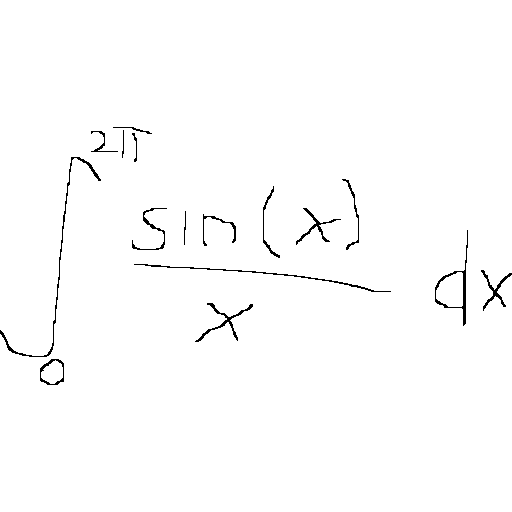 ∫₀^{2π} sin(x)/x dx